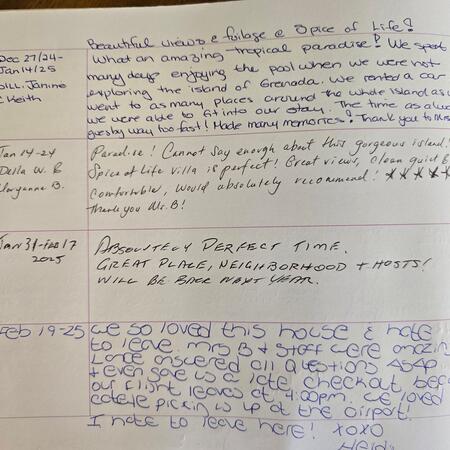 Beautiful views & foliage @ Spice of Life!
Dec 27/24-
Jan 14/25
Janine
& Keith
What an amazing tropical paradise! We spent
many days enjoying the pool when we were not
exploring the island of Grenada. We rented a car
went to as many places around the whole island as
we were able to fit into our stay. The time as always
goes by way too fast! Made many memories! Thank you to Mrs
Jan 14-24
Della W. &
B.
Paradise! Cannot say enough about this gorgeous island!
Spice of Life Villa is perfect! Great views, clean quiet &
comfortable, would absolutely recommend! ★★★★★
Thank you Ms. B!
Jan 31-Feb 17
2025
ABSOLUTELY PERFECT TIME.
GREAT PLACE, NEIGHBORHOOD + HOSTS!
WILL BE BACK NEXT YEAR.
Feb 19-25
We so loved this house & hate
to leave. Mrs B & Staff were amazing
answered all questions ASAP
& even gave us a late checkout
our flight leaves at 4:00pm. We loved
us up at the airport!
I hate to leave here! XOXO
Heidi